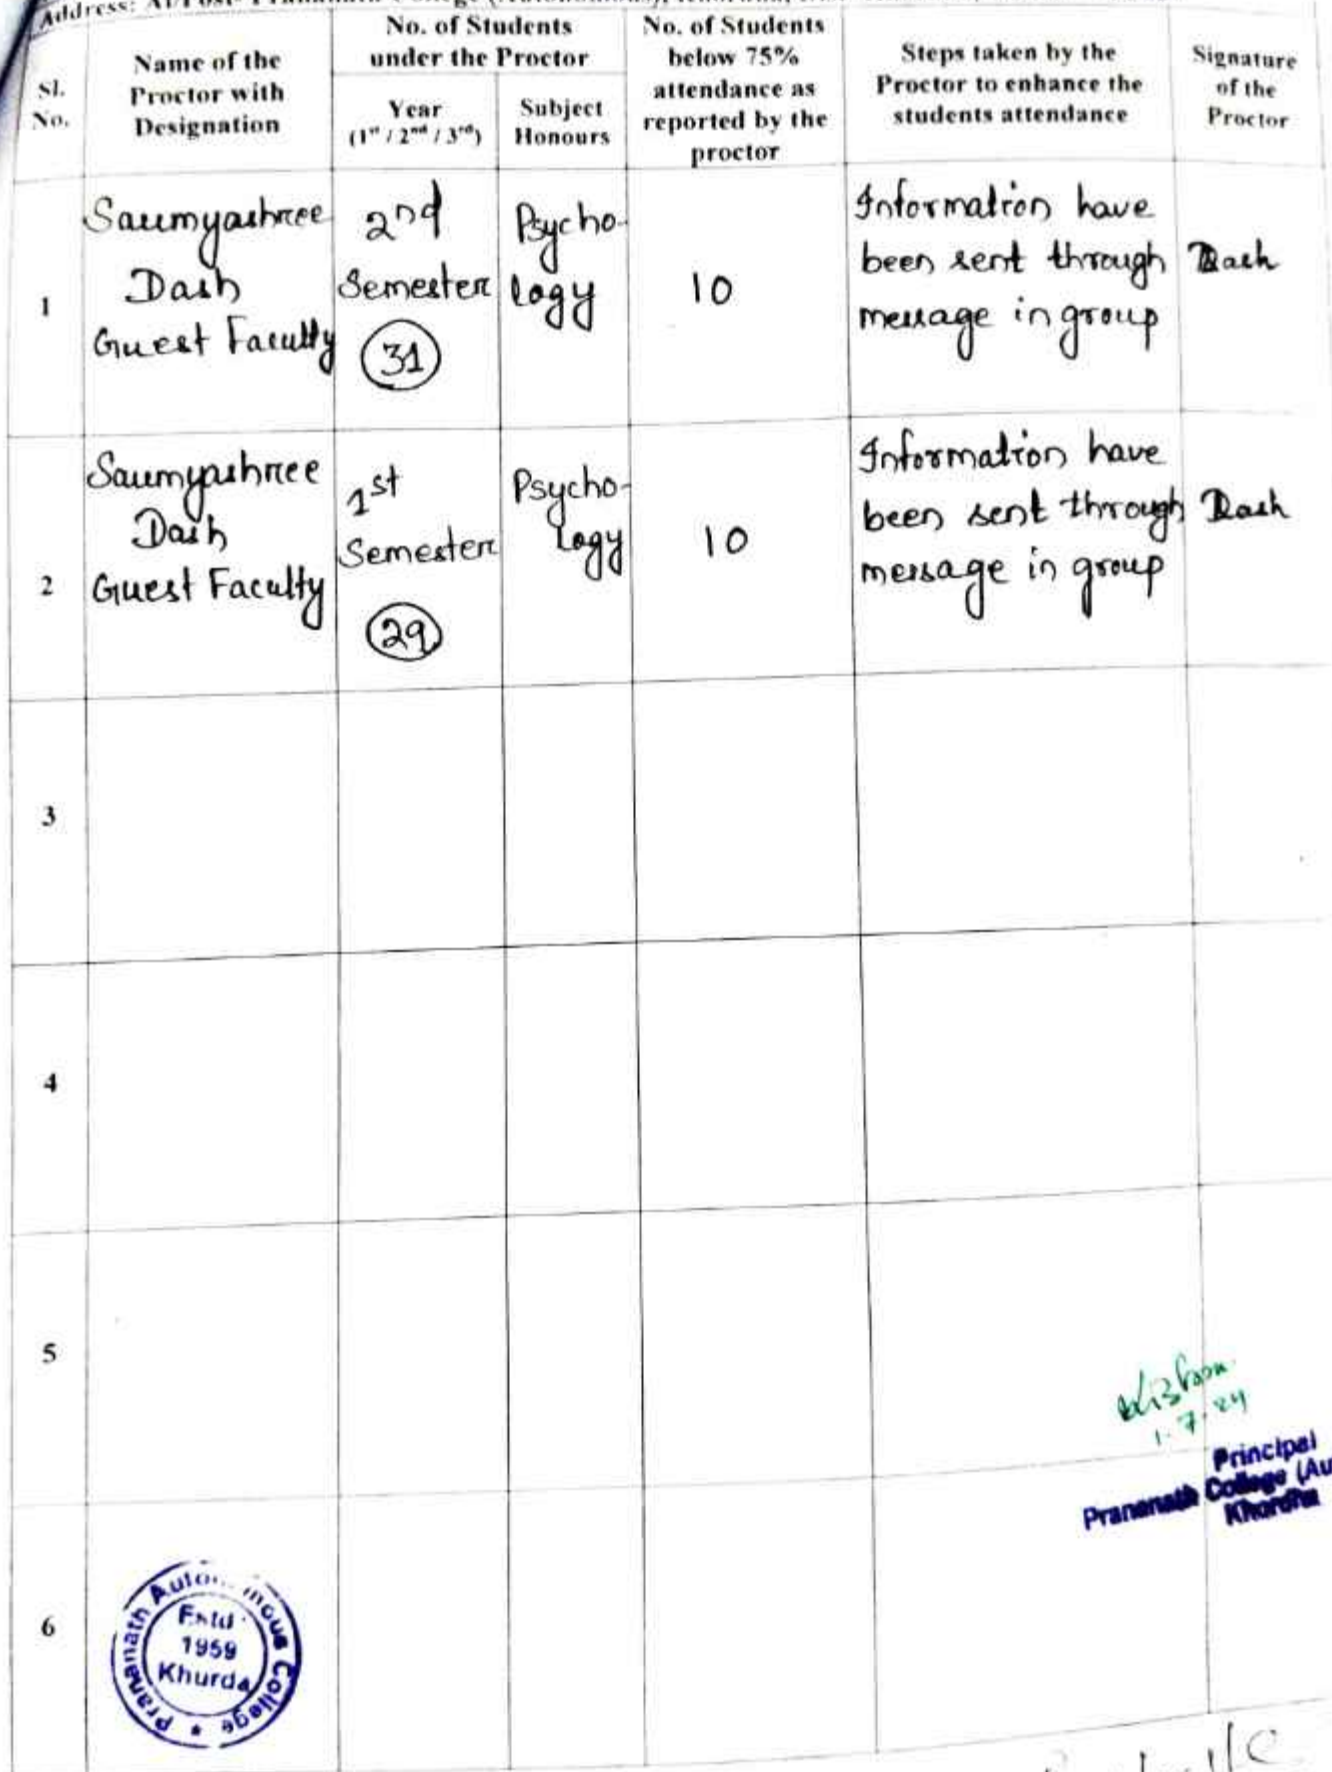 Address: At/Post- Prananath College (Autonomous), Khurdha,
Sl. No.
Name of the Proctor with Designation
No. of Students under the Proctor
Year (1st / 2nd / 3rd)
Subject Honours
No. of Students below 75% attendance as reported by the proctor
Steps taken by the Proctor to enhance the students attendance
Signature of the Proctor
1
Saumyashree
Dash
Guest Faculty
2nd
Semester
31
Psycho-
logy
10
Information have
been sent through
message in group
Dash
2
Saumyashree
Dash
Guest Faculty
1st
Semester
29
Psycho-
logy
10
Information have
been sent through
message in group
Dash
3
4
5
1.7.24
Principal
Prananath College (Au
Khordha
6
Prananath Autonomous College
Estd
1959
Khurda